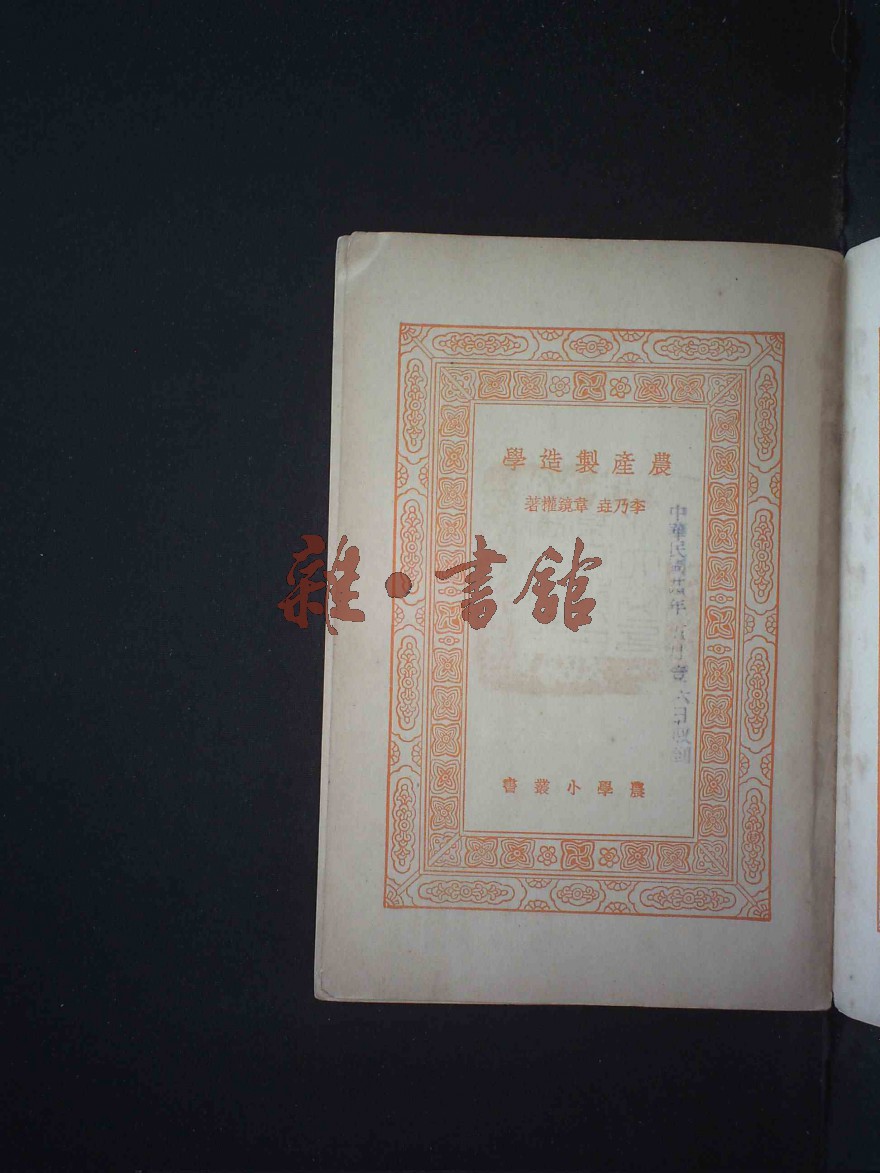 農產製造學
李乃垚 韋鏡權著
雜·書館
農學小叢書
中華民國廿年